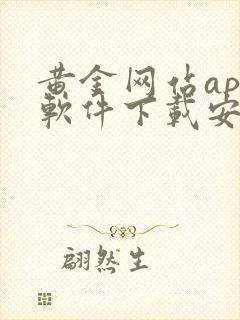 黄金网站ap
軟件下載安
翩然生